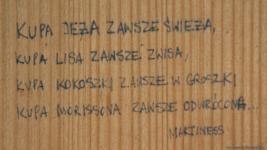 KUPA JEŻA ZAWSZE ŚWIEŻA,
KUPA LISA ZAWSZE ZWISA,
KUPA KOKOSZKI ZAWSZE W GROSZKI
KUPA MORISSONA ZAWSZE ODWRÓCONA...
MARTINESS